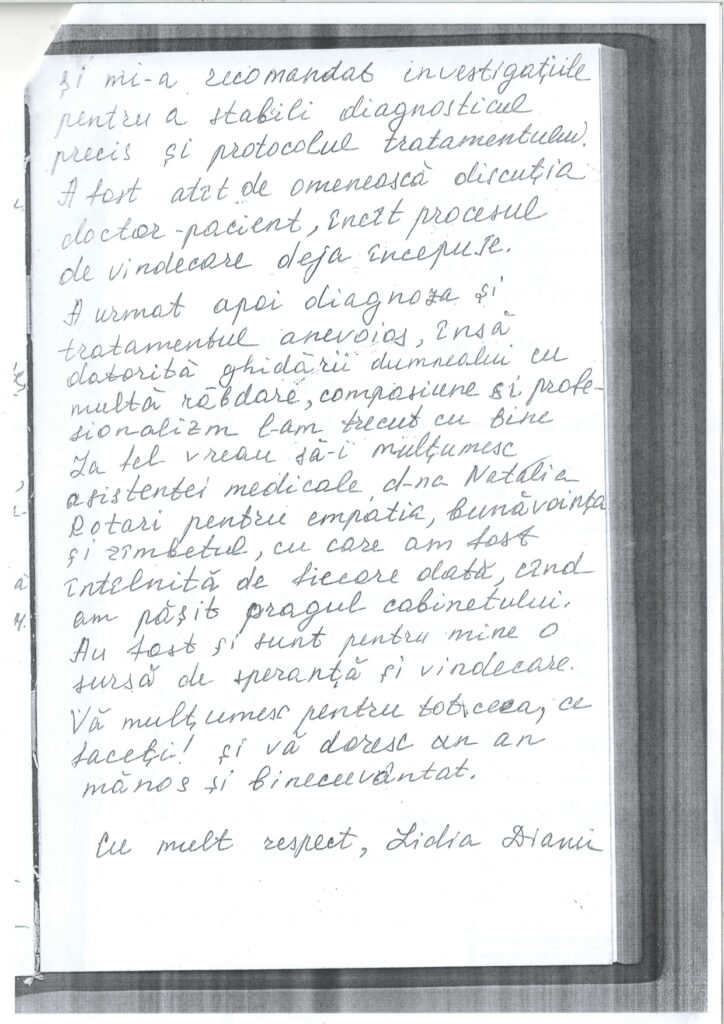 și mi-a recomandat investigațiile
pentru a stabili diagnosticul
precis și protocolul tratamentului.
A fost atît de omenească discuția
doctor-pacient, încît procesul
de vindecare deja începuse.
A urmat apoi diagnoza și
tratamentul anevoios, însă
datorită ghidării dumnealui cu
multă răbdare, compasiune și profe-
sionalizm l-am trecut cu bine
La fel vreau să-i mulțumesc
asistentei medicale, d-na Natalia
Rotari pentru empatia, bunăvoința
și zîmbetul, cu care am fost
întîlnită de fiecare dată, cînd
am pășit pragul cabinetului.
Au fost și sunt pentru mine o
sursă de speranță și vindecare.
Vă mulțumesc pentru tot ceea, ce
faceți! și vă doresc un an
mănos și binecuvântat.
Cu mult respect, Lidia